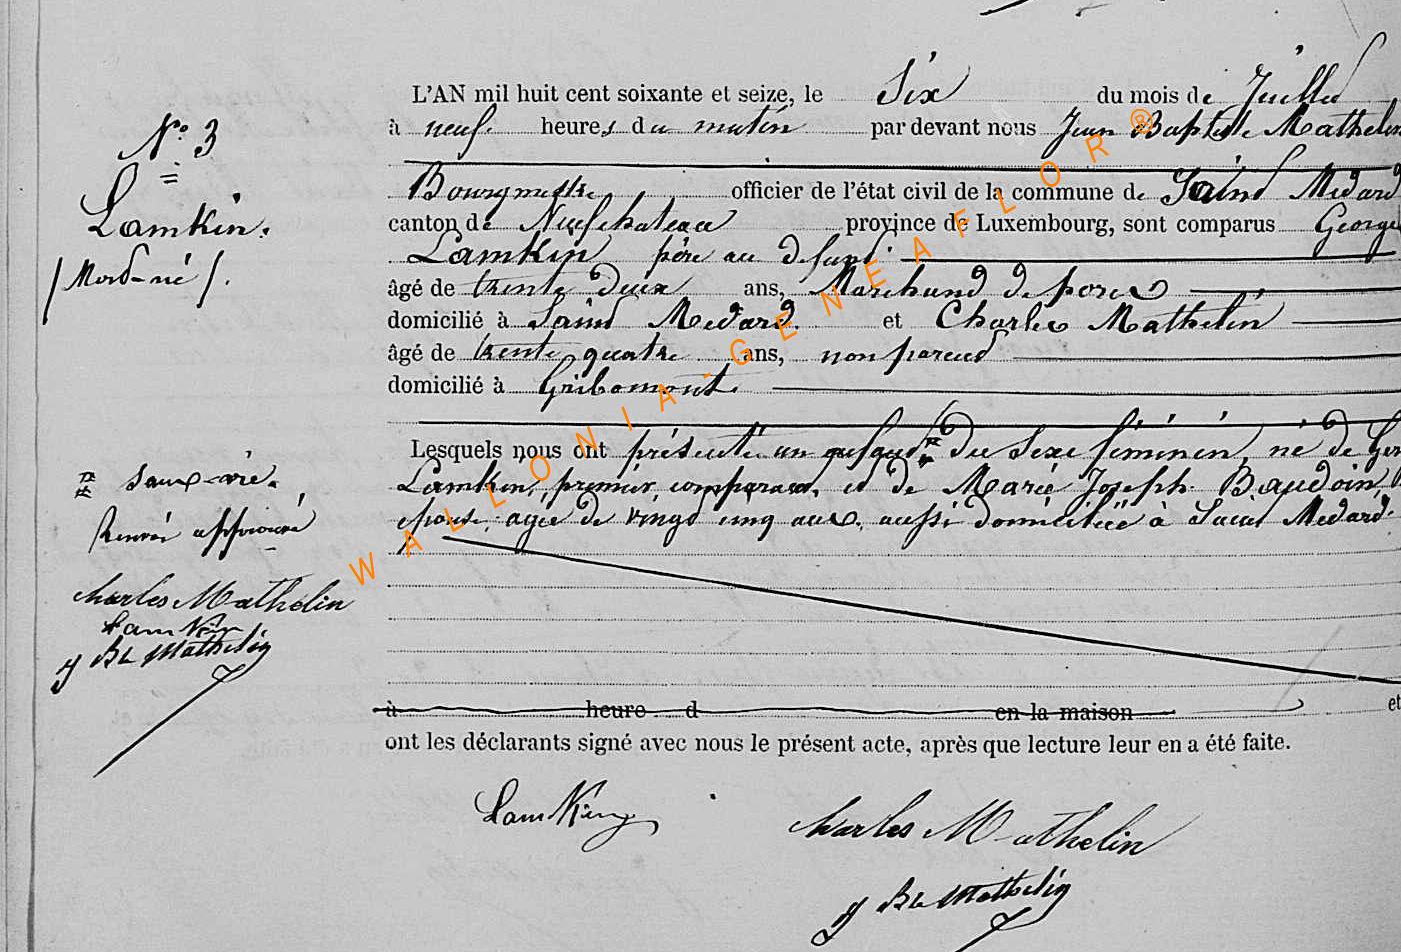 L'AN mil huit cent soixante et seize, le Six du mois de Juillet
à neuf heures du matin par devant nous Jean Baptiste Mathelin
Bourgmestre officier de l'état civil de la commune de Saint Médard
canton de Neufchateau province de Luxembourg, sont comparus Georges
Lamkin père au défunt
âgé de trente deux ans, Marchand de porcs
domicilié à Saint Medard et Charles Mathelin
âgé de trente quatre ans, non parent
domicilié à Gribomont.
Lesquels nous ont présenté un enfant du sexe féminin, né de
Lamkin, premier comparant, et de Marie Joseph Baudoin,
épouse, agée de vingt cinq ans, aussi domiciliée à Saint Medard.
à heure d en la maison et
ont les déclarants signé avec nous le présent acte, après que lecture leur en a été faite.
LamKin
Charles Mathelin
J Bte Mathelin
No 3
Lamkin.
/ Mort-né /.
sans vie.
Renvoi approuvé
Charles Mathelin
LamKin
J Bte Mathelin
WALLONIA-GENEAFLOR®